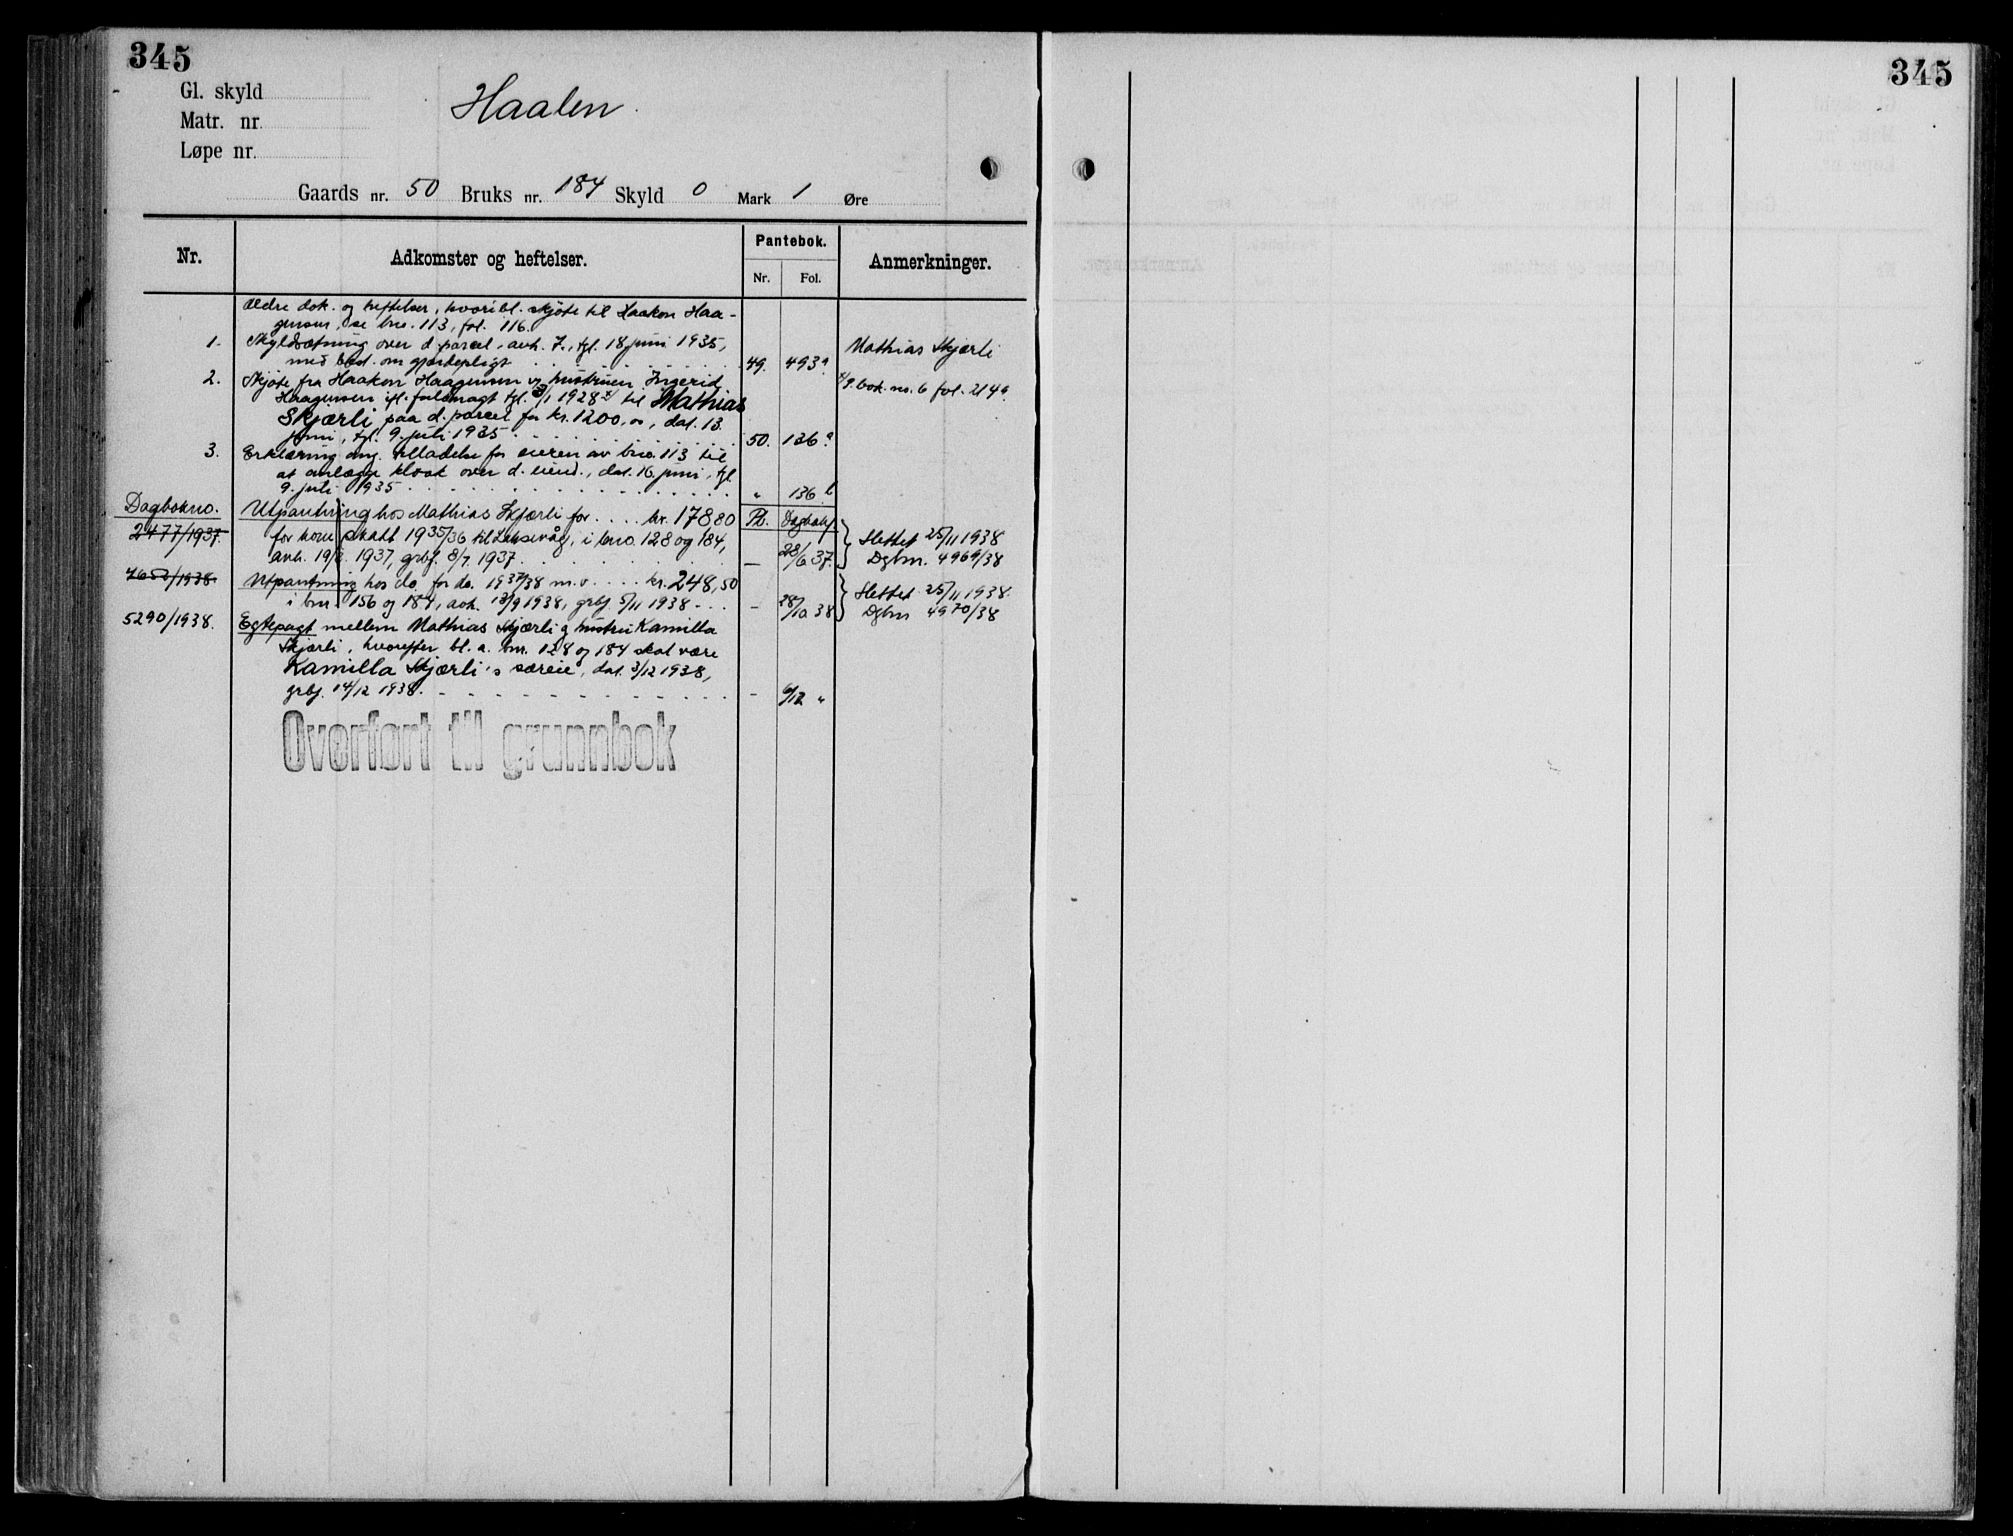 345
345
Gl. skyld
Matr. nr.
Løpe nr.
Haalen
Gaards nr. 50 Bruks nr. 184 Skyld 0 Mark 1 Øre
Nr. Adkomster og heftelser. Pantebok. Anmerkninger.
Nr. Fol.
Ældre dok. og heftelser, hvoribl. skjøte til Haakon Haa-
gensen, se bno. 113, fol. 116.
1. Skyldsætning over d. parcel, avh. 7., tgl. 18 juni 1935,
med best. om gjerdepligt 49. 493a Mathias Skjærli
2. Skjøte fra Haakon Haagensen og hustruen Ingerid
Haagensen ifl. fuldmagt tgl. 1928 til Mathias P.bok. no. 6 fol. 214a
Skjærli paa d. parcel for kr. 1200,00, dat. 13
juni, tgl. 9. juli 1935 50. 136a
3. Erklæring ang. tilladelse for eieren av bno. 113 til
at anlægge kloak over d. eiend., dat. 16 juni, tgl
9. juli 1935 " 136b
Dagbokno. Utpantning hos Mathias Skjærli for kr. 178 80 Pb. Dagbokf
2477/1937. for kom skatt 1935/36 til Laksevåg, i bno. 128 og 184, Slettet 25/11 1938
avh. 19/6 1937, grbf. 8/7 1937 — 28/6 37. Dgbnr. 4969/38
4652/1938. Utpantning hos do. for do. 1937/38 m.v. kr. 248,50 Slettet 25/11 1938.
i bnr. 156 og 184, avh. 13/9 1938, grbf. 5/11 1938 - 28/10 38 Dgbnr 4970/38
5290/1938. Egtepagt mellem Mathias Skjærli og hustru Kamilla
Skjærli, hvorefter bl. a. bnr. 128 og 184 skal være
Kamilla Skjærli's særeie, dat. 3/12 1938,
grbf. 14/12 1938. - 6/12 "
Overført til grunnbok